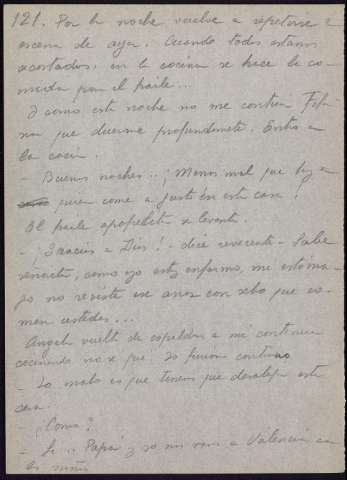 121. Por la noche vuelve a repetirse la
escena de ayer. Cuando todos estamos
acostados, en la cocina se hace la co-
mida para el fraile...
Y como esta noche no me contiene Pepi-
na que duerme profundamente. Entro en
la cocina.
- Buenos noches... ¡Menos mal que hay
quien come a gusto en esta casa!
El fraile apoplético se levanta.
- ¡Gracias a Dios! - dice reverente - Sabe
señorita, como yo estoy enfermo, mi estóma-
go no resiste ese arroz con sebo que co-
men ustedes...
Angela vuelta de espaldas a mi continua
cocinando no se que. Yo furiosa continuo
- Lo malo es que tienen que desalojar esta
casa.
- ¿Como?
- Si... Papá y yo nos vamos a Valencia con
los niños